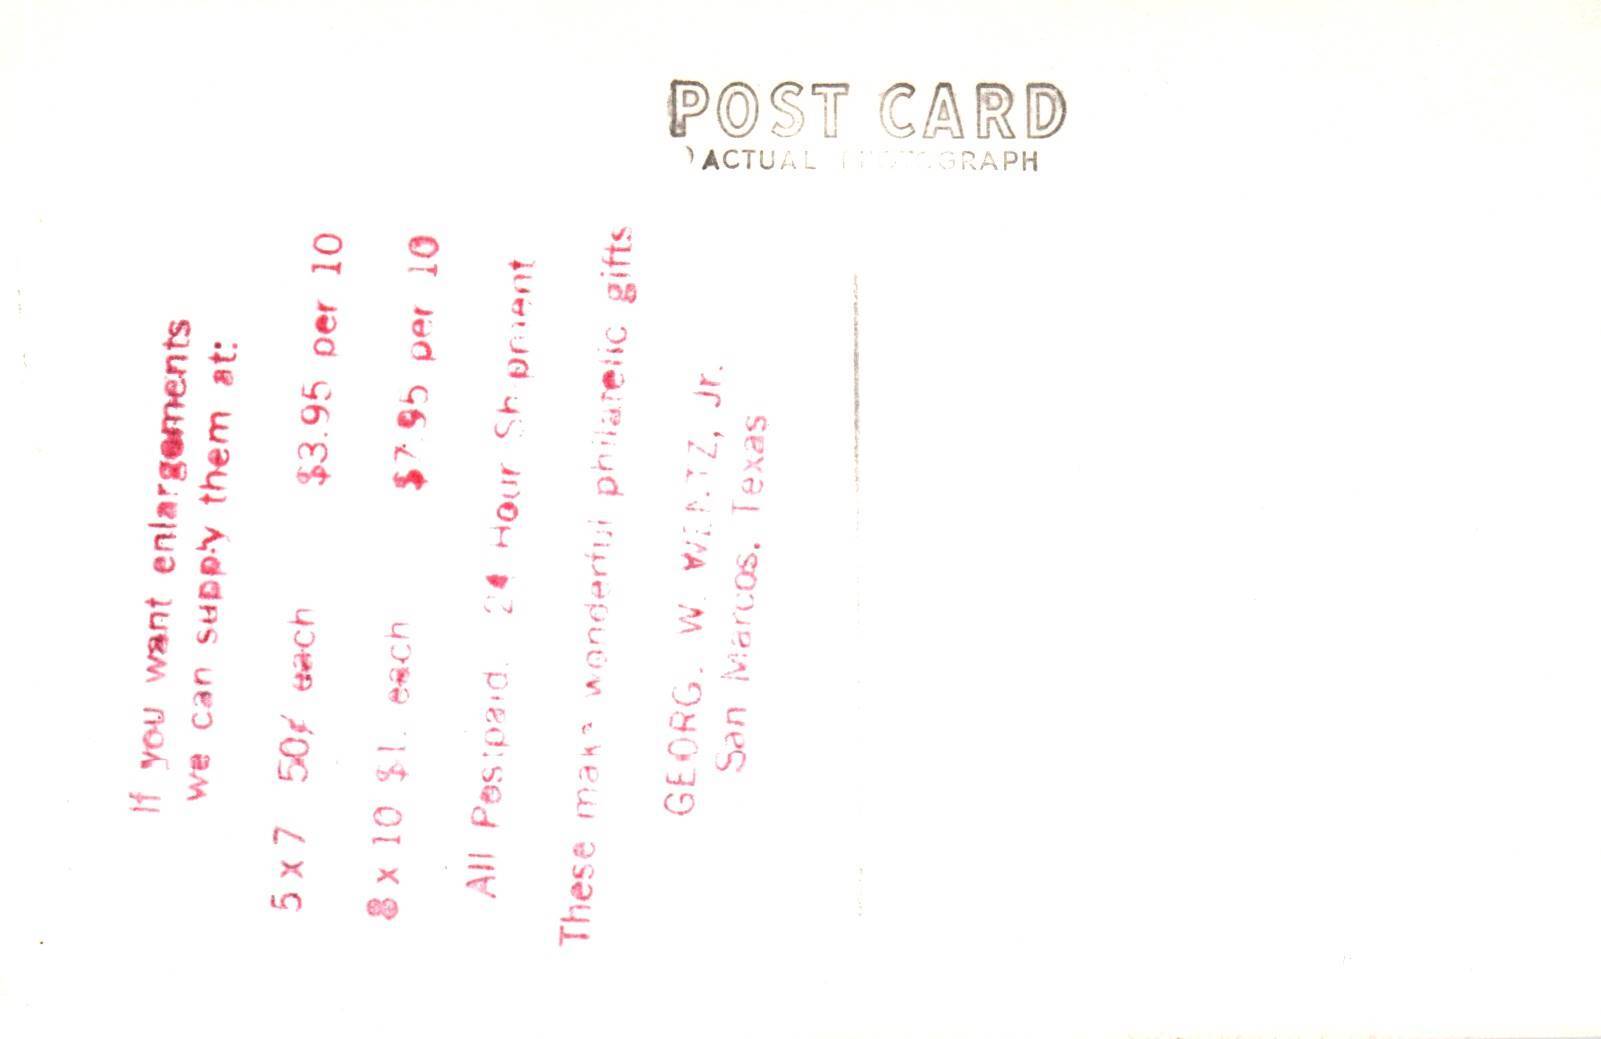 POST CARD
ACTUAL PHOTOGRAPH
If you want enlargements
we can supply them at:
5 x 7 50¢ each $3.95 per 10
8 x 10 $1. each $7.95 per 10
All Postpaid. 24 Hour Shipment
These make wonderful philatelic gifts
GEORG. W. WENTZ, Jr.
San Marcos, Texas